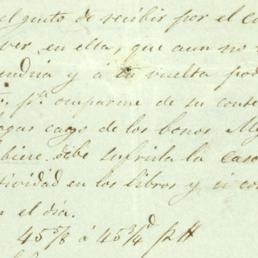 el gusto de recibir por el co
ver, en esta, que aun no
endria y á tu vuelta pod
pª ocuparme de su conte
agas cargo de los bonos My
biere debe sufrirla la casa
tividad en los libros y si co
n el dia.
45 5/8 á 45 3/4 d p. H